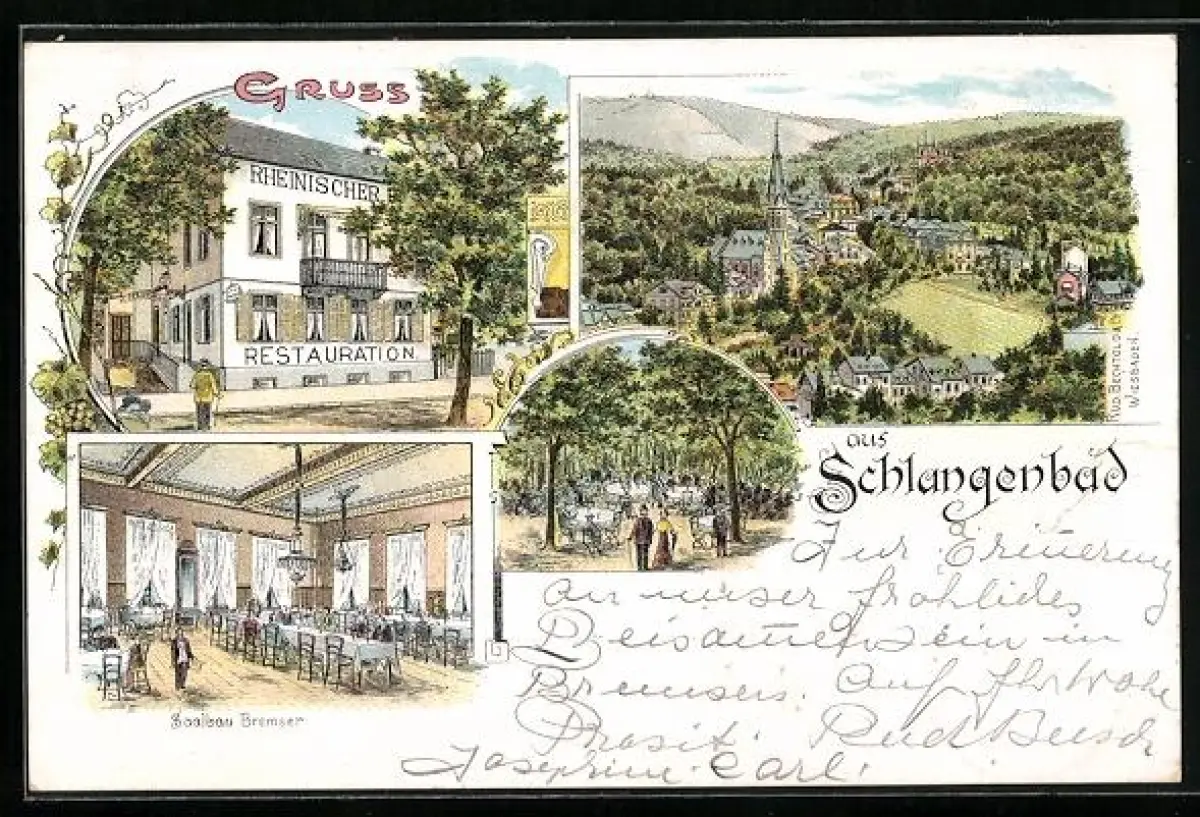 GRUSS
RHEINISCHER
RESTAURATION.
RUD. BECHTOLD
WIESBADEN.
aus
Schlangenbad
Saalbau Bremser
Zur Erinerung
an unser fröhliches
Beisamensein in
Bremsers. Auf Ihr Wohl
Prosit. Rud
Josephine Carl.